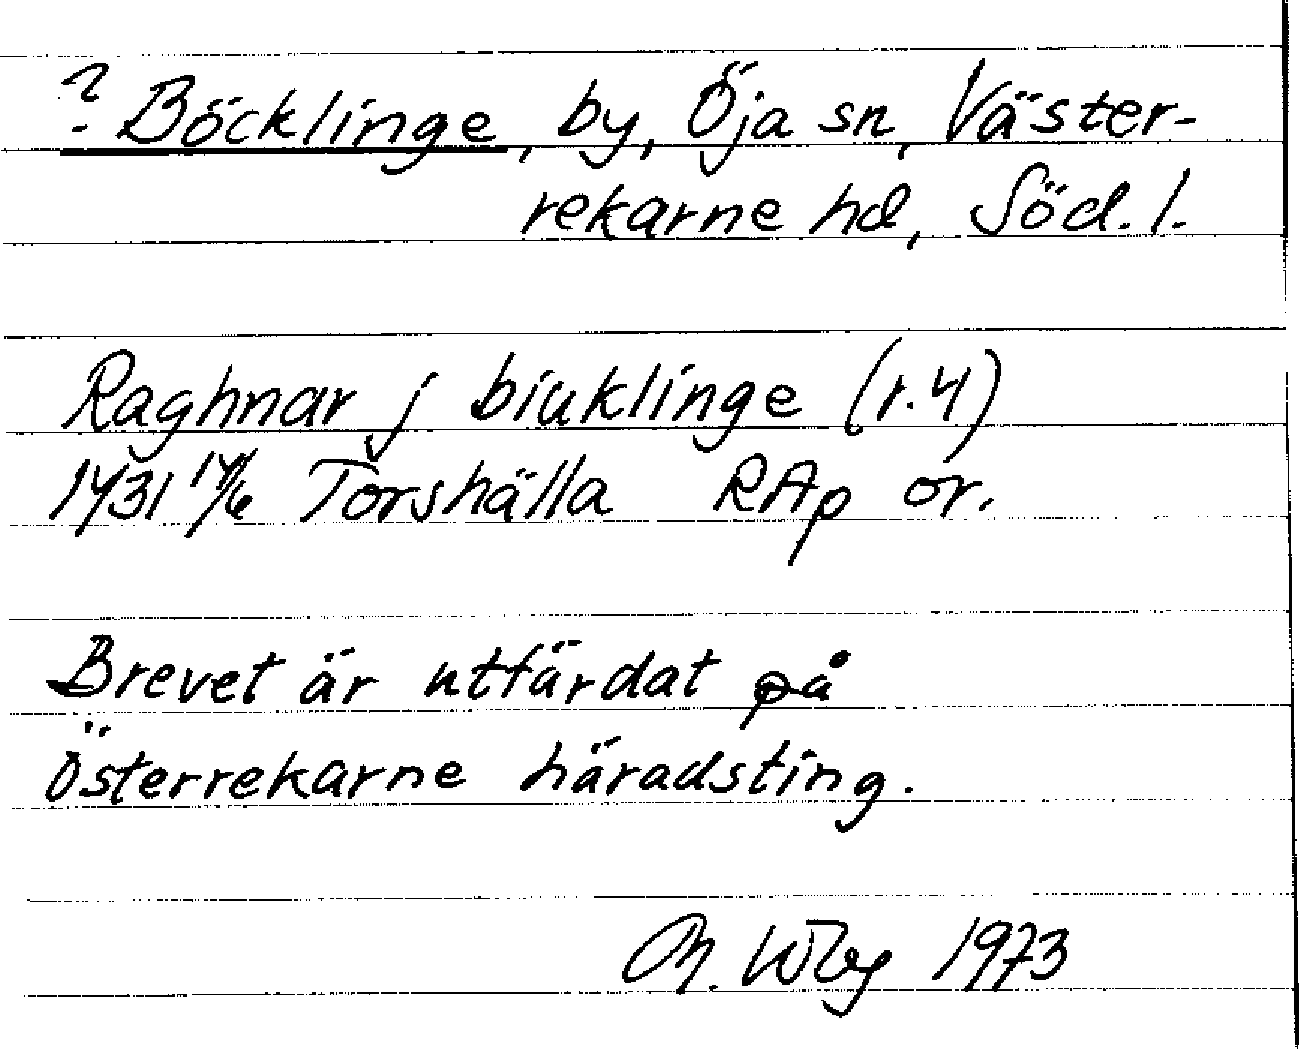 ? Böcklinge, by, Öja sn, Väster-
rekarne hd, Söd. l.
Raghnar j biuklinge (r.4)
1431 14/6 Torshälla RAp or.
Brevet är utfärdat på
Österrekarne häradsting.
1973